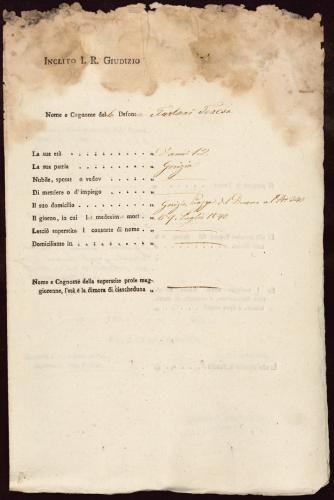 INCLITO I. R. GIUDIZIO
Nome e Cognome della Defonta Furlani Teresa
La sua età „ d'anni 12
La sua patria „ Gorizia
Nubile, sposo o vedov „
Di mestiere o d'impiego „
Il suo domicilio „ Gorizia Piazza del Duomo al N.
Il giorno, in cui la medesima morì „ li 9 Luglio 1840
Lasciò superstite l consorte di nome „
Domiciliante in „
Nome e Cognome della superstite prole maggiorenne, l'età e la dimora di ciascheduna „